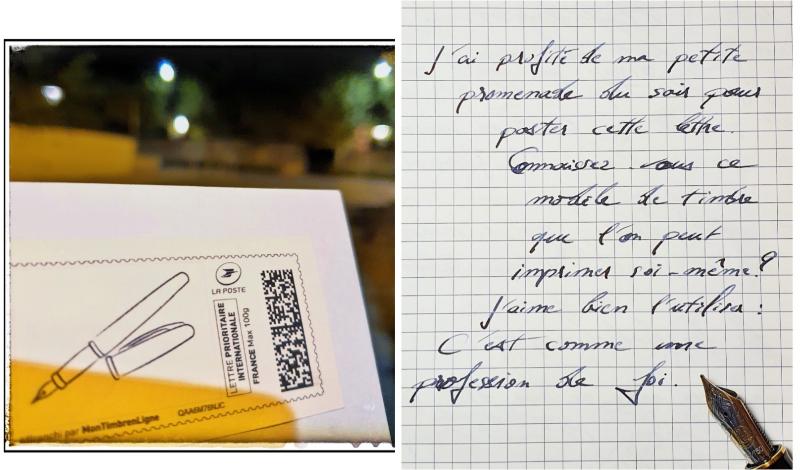 LA POSTE
LETTRE PRIORITAIRE
INTERNATIONALE
FRANCE Max 100g
par MonTimbrenLigne
J'ai profité de ma petite
promenade du soir pour
poster cette lettre.
Connaissez vous ce
modèle de timbre
que l'on peut
imprimer soi-même ?
J'aime bien l'utiliser :
C'est comme une
profession de foi.